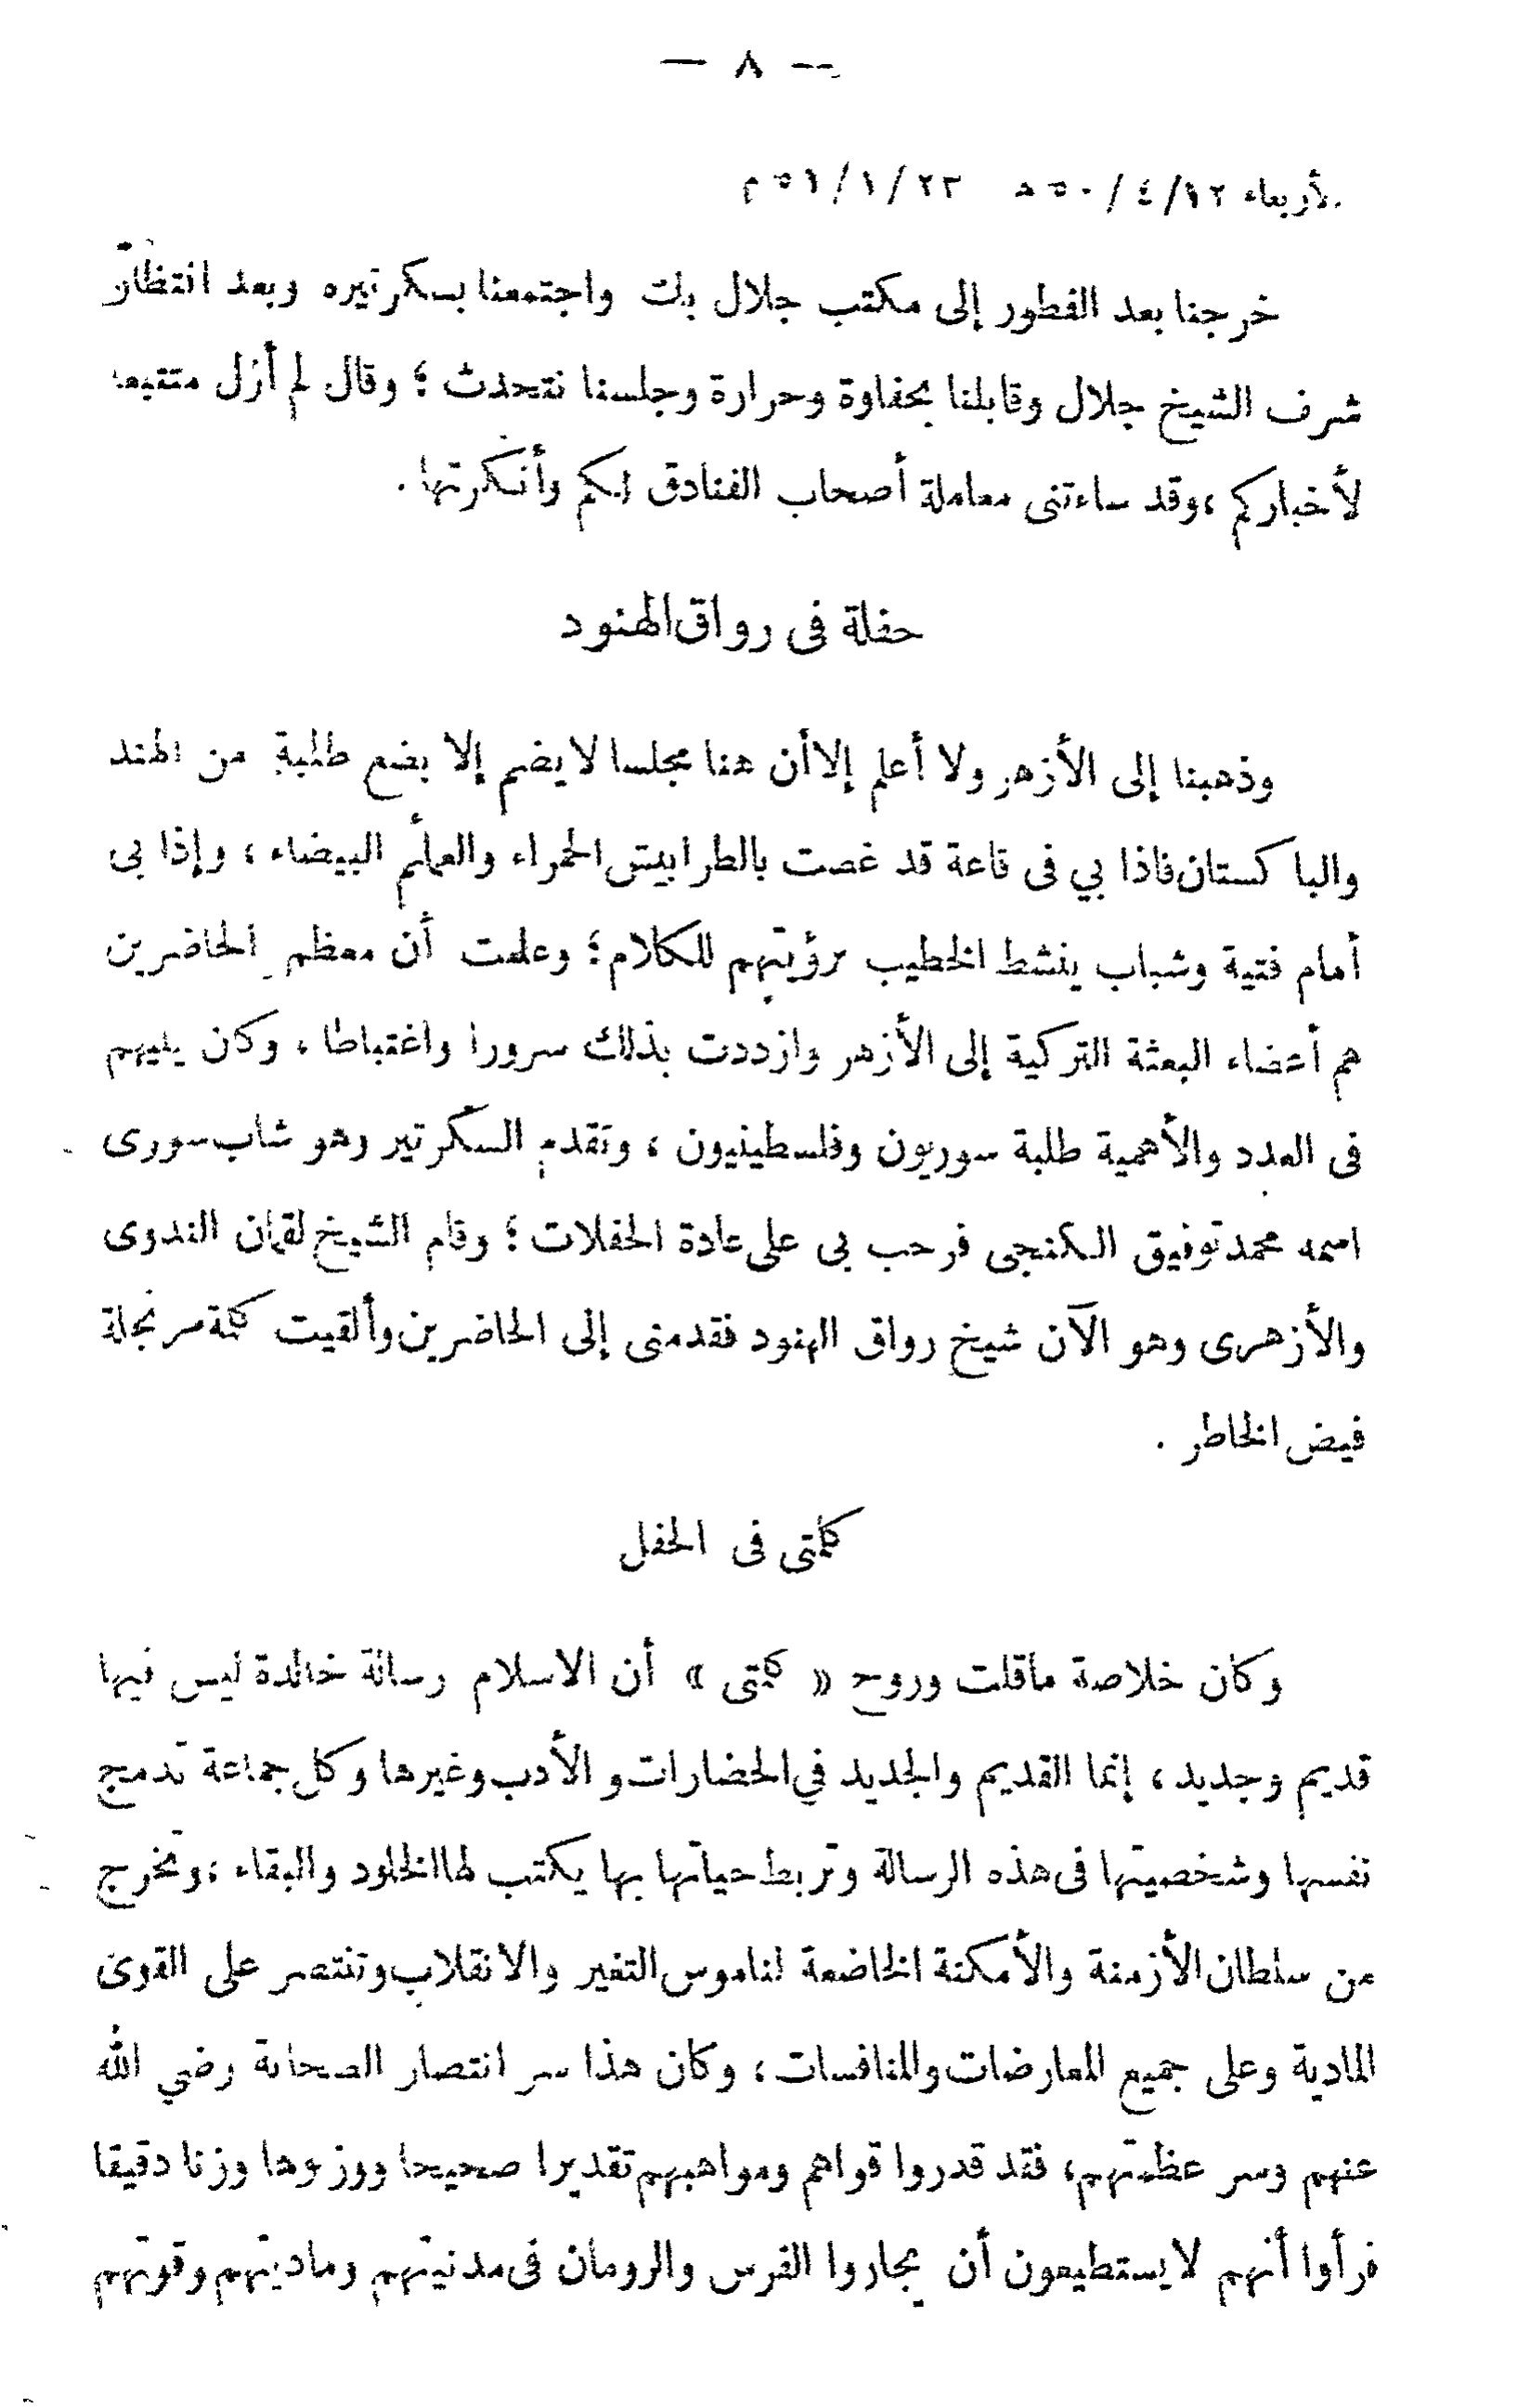 — ٨ —
الأربعاء ١٢/٤/٥٠ هـ ٢٣/١/٥١ م
خرجنا بعد الفطور إلى مكتب جلال بك واجتمعنا بسكرتيره وبعد انتظار
شرف الشيخ جلال وقابلنا بحفاوة وحرارة وجلسنا نتحدث ؛ وقال لم أزل متتبعا
لأخباركم ، وقد ساءتنى معاملة أصحاب الفنادق لكم وأنكرتها .
حفلة فى رواق الهنود
وذهبنا إلى الأزهر ولا أعلم إلا أن هنا مجلسا لا يضم إلا بضع طلبة من الهند
والباكستان فاذا بي فى قاعة قد غصت بالطرابيش الحمراء والعمائم البيضاء ، وإذا بى
أمام فتية وشباب ينشط الخطيب برؤيتهم للكلام ؛ وعلمت أن معظم الحاضرين
هم أعضاء البعثة التركية إلى الأزهر وازددت بذلك سرورا واغتباطا ، وكان يليهم
فى العدد والأهمية طلبة سوريون وفلسطينيون ، وتقدم السكرتير وهو شاب سورى
اسمه محمد توفيق الكنجى فرحب بى على عادة الحفلات ؛ وقام الشيخ لقمان الندوى
والأزهرى وهو الآن شيخ رواق الهنود فقدمنى إلى الحاضرين وألقيت كلمة مرتجلة
فيض الخاطر .
كلمتى فى الحفل
وكان خلاصة ماقلت وروح « كلمتى » أن الاسلام رسالة خالدة ليس فيها
قديم وجديد ، إنما القديم والجديد في الحضارات و الأدب وغيرها وكل جماعة تدمج
نفسها وشخصيتها فى هذه الرسالة وتربط حياتها بها يكتب لها الخلود والبقاء ، وتخرج
من سلطان الأزمنة والأمكنة الخاضعة لناموس التغير والانقلاب وتنتصر على القوى
المادية وعلى جميع المعارضات والمنافسات ، وكان هذا سر انتصار الصحابة رضي الله
عنهم وسر عظمتهم ، فقد قدروا قواهم ومواهبهم تقديرا صحيحا ووزنوها وزنا دقيقا
فرأوا أنهم لا يستطيعون أن يجاروا الفرس والرومان فى مدنيتهم وماديتهم وقوتهم